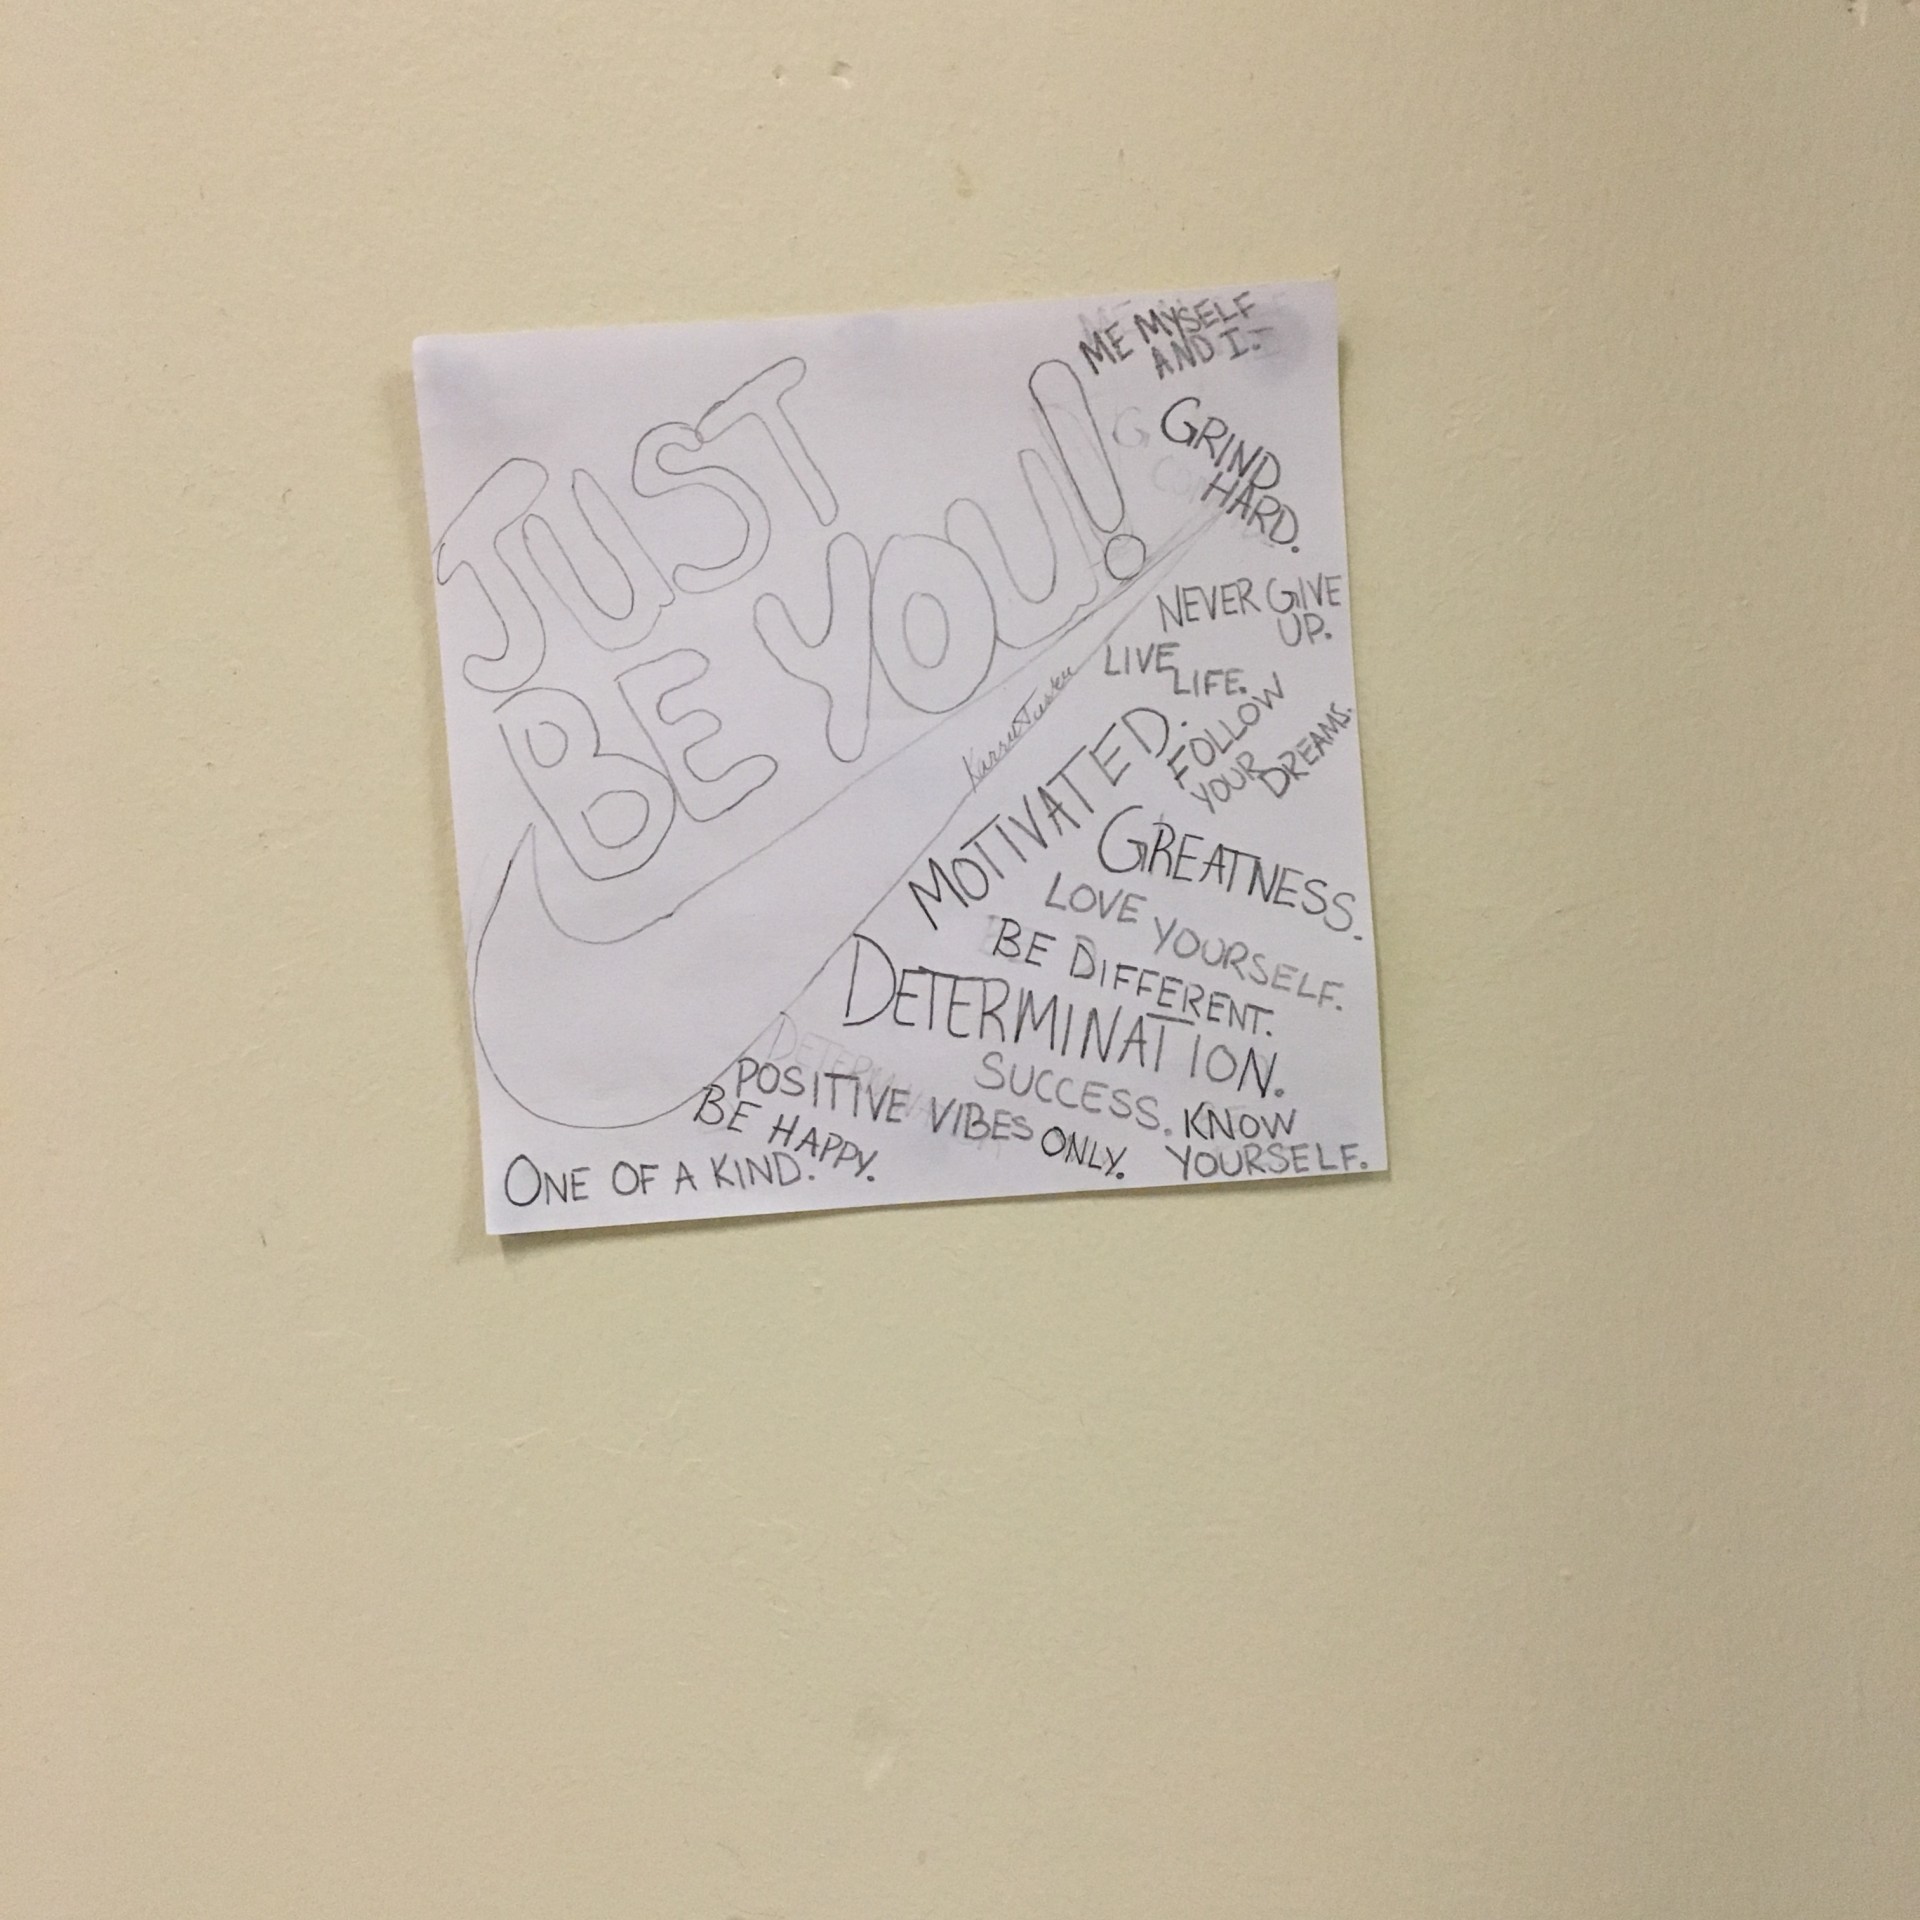 JUST
BE YOU!
ME MYSELF
AND I.
GRIND
HARD.
NEVER GIVE
UP.
LIVE
LIFE.
FOLLOW
YOUR DREAMS.
MOTIVATED.
GREATNESS.
LOVE YOURSELF.
BE DIFFERENT.
DETERMINATION.
SUCCESS.
POSITIVE VIBES ONLY.
KNOW
YOURSELF.
BE HAPPY.
ONE OF A KIND.